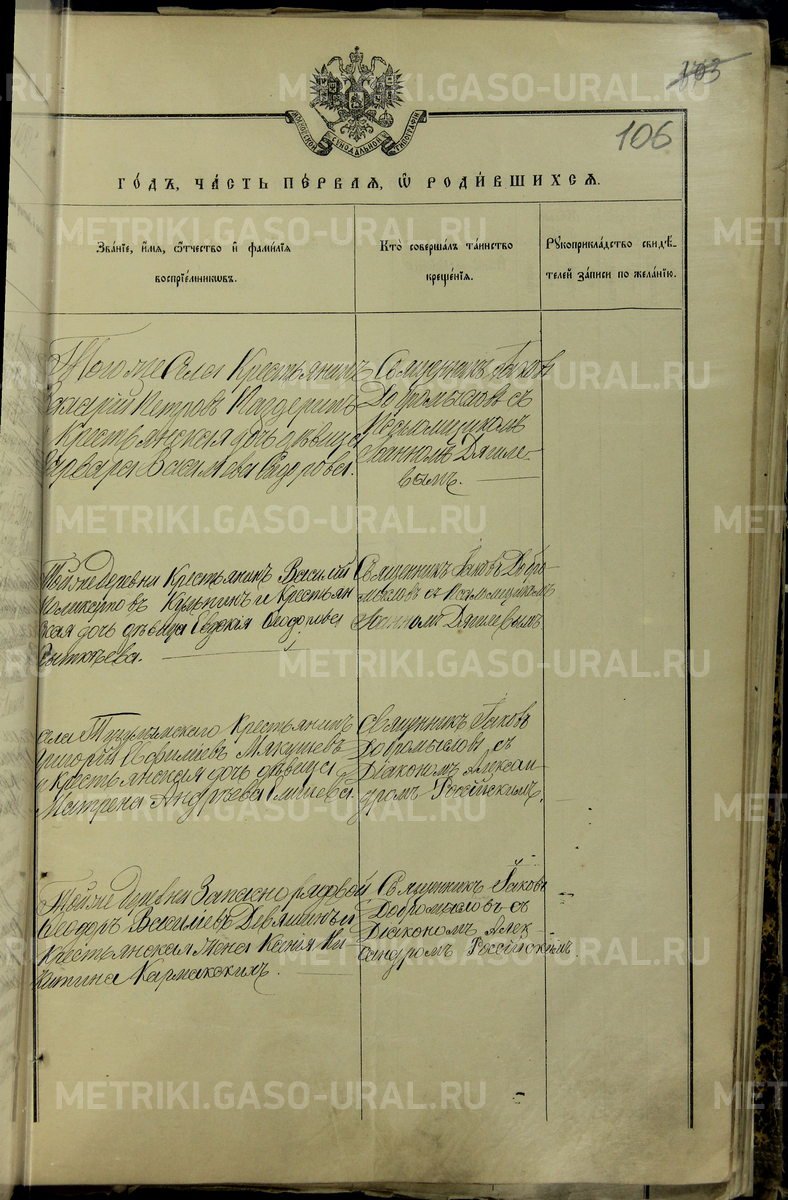 103
106
МОСКОВСКОЙ СѴНОДАЛЬНОЙ ТИПОГРАФІИ
ГО́ДЪ, ЧА́СТЬ ПЕ́РВАЯ, Ѡ҆ РОДИ́ВШИХСЯ.
Зва́нїе, и҆́мя, ѻ҆́тчество и҆ фами́лїя
воспрїе́мникѡвъ.
Кто̀ соверша́лъ та́инство
креще́нїя.
Рꙋкоприкла́дство свидѣ́-
телей за́писи по жела́нїю.
Того же Села Крестьянинъ
Петровъ
Крестьянская дочь дѣвица
Варвара Васильева Сидорова.
Священникъ Іаковъ
Добромысловъ съ
Псаломщикомъ
Іоанномъ Дягиле-
вымъ.
Той же деревни Крестьянинъ Василій
и Крестьян
ская дочь дѣвица Евдокія Ѳеодорова
Священникъ Іаковъ Добро-
мысловъ съ Псаломщикомъ
Іоанномъ Дягилевымъ
села Крестьянинъ
Григорій Мякушевъ
и крестьянская дочь дѣвица
Матрена Андреева
Священникъ Іаковъ
Добромысловъ съ
Діакономъ Алексан
дромъ Россійскимъ.
Той же деревни Запасно рядовой
Ѳеодоръ Васильевъ Деряшинъ и
Крестьянская Жена Ксенія Ни
китина
Священникъ Іаковъ
Добромысловъ съ
Діакономъ Алек-
сандромъ Россійскимъ.
METRIKI.GASO-URAL.RU